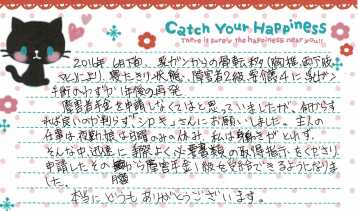 Catch Your Happiness
There is surely the happiness near you!!
2016年6月下旬、乳ガンからの骨転移(胸椎、
により、寝たきり状態、障害者2級、要介護4に 乳ガン
手術のわずか1年後の再発。
障害者年金を申請しなくてはと思っていましたが、何からす
れば良いのか判らず さんにお願いしました。主人の
仕事は夜勤、娘は日曜のみの休み、私は身動きがとれず、
そんな中、迅速に手際よく必要書類の取得指示をくださり
申請したその から障害年金1級を受給できるようになりま
した。
本当にどうもありがとうございます。